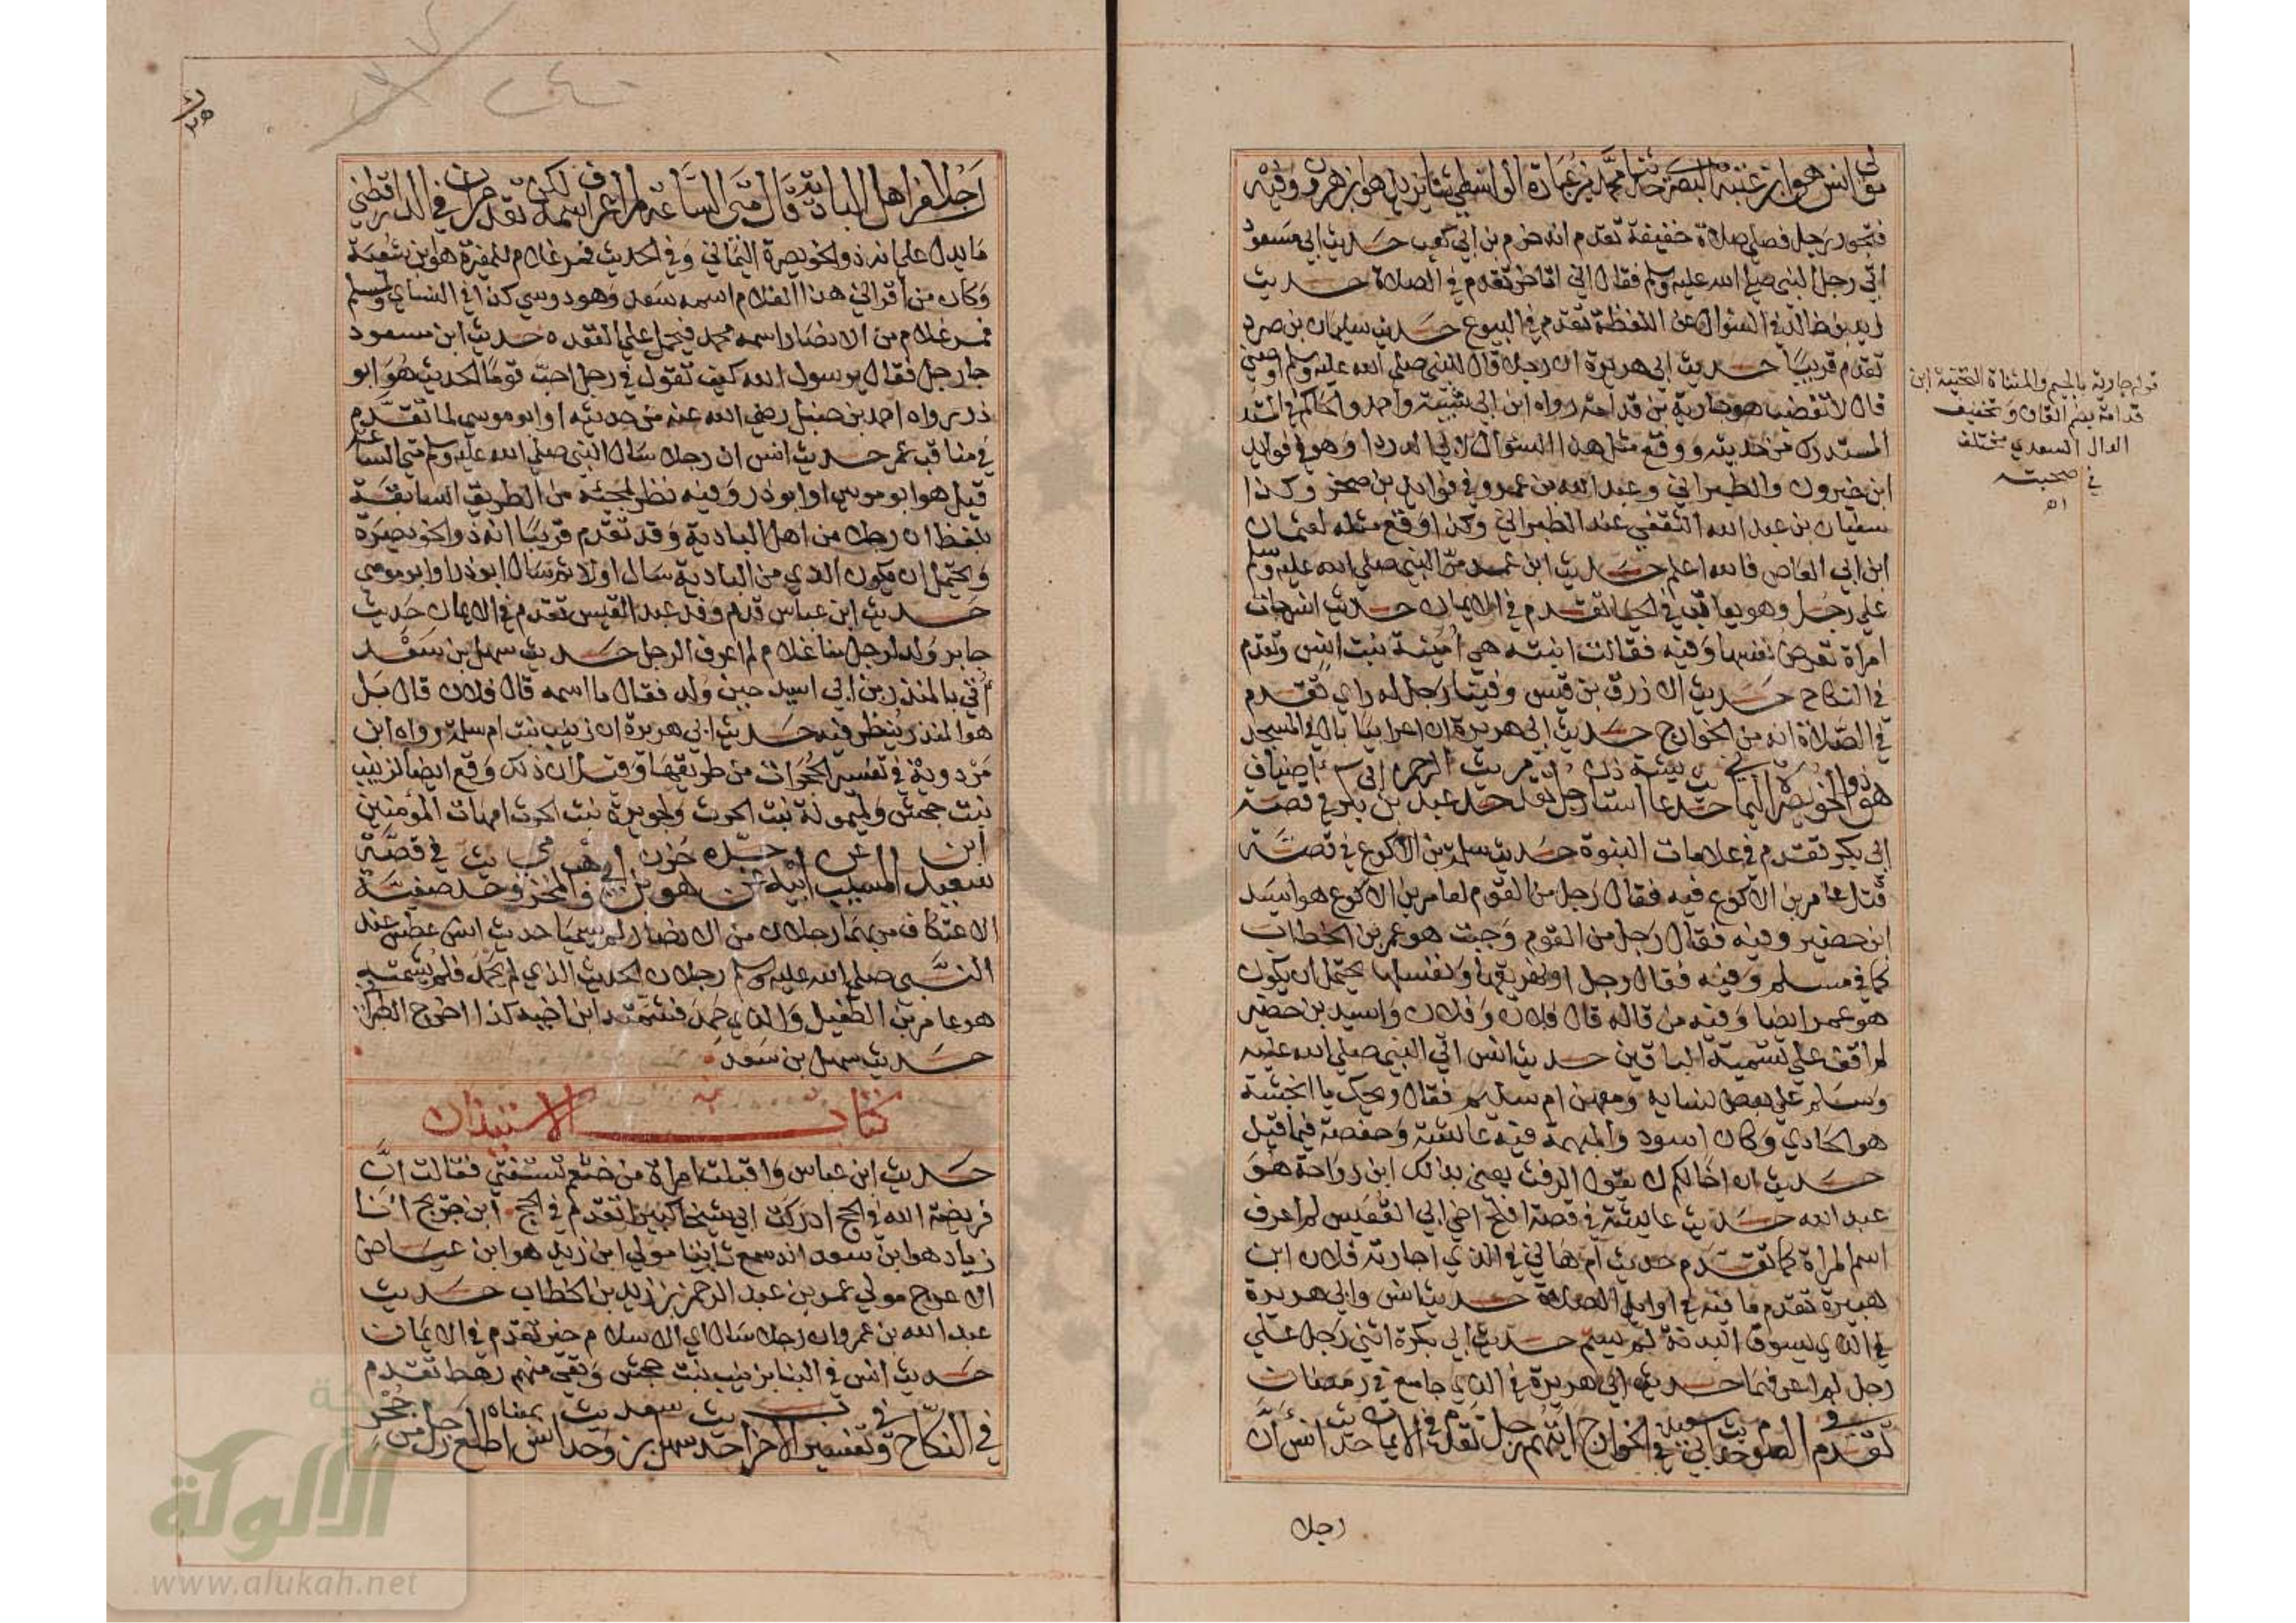 مولى انس هو ابن عتبة البصري حدثنا محمد بن عبادة الواسطي ثنا يزيد هو ابن هرون وفيه
فتجوز رجل فصلى صلاة خفيفة تقدم انه حزم بن ابي كعب حديث ابي مسعود
اتى رجل النبي صلى الله عليه وسلم فقال اني اتاخر تقدم في الصلاة حديث
زيد بن خالد في السؤال عن اللقطة تقدم في البيوع حديث سليمان بن صرد
تقدم قريبا حديث ابي هريرة ان رجلا قال للنبي صلى الله عليه وسلم اوصني
قال لا تغضب هو جارية بن قدامة رواه ابن ابي شيبة واحمد والحاكم في
المستدرك من حديثه ووقع مثل هذا السؤال لابي الدردا وهو في فوايد
ابن خيرون والطبراني وعبد الله بن عمرو في فوايد بن صخر وكذا
سفيان بن عبد الله الثقفي عند الطبراني وكذا وقع مثله لعثمان
ابن ابي العاص فالله اعلم حديث ابن عمر مر النبي صلى الله عليه وسلم
على رجل وهو يعاتب في الحيا تقدم في الايمان حديث انس جات
امراة تعرض نفسها وفيه فقالت ابنته هي امينة بنت انس وتقدم
في النكاح حديث الازرق بن قيس وفينا رجل له راي تقدم
في الصلاة انه من الخوارج حديث ابي هريرة ان اعرابيا بال في المسجد
هو ذو الخويصرة اليماني حديث عايشة استاذن رجل تقدم حديث عبد الرحمن بن ابي بكر في قصة اضياف
ابي بكر تقدم في علامات النبوة حديث سلمة بن الاكوع في قصة
قتل عامر بن الاكوع فيه فقال رجل من القوم لعامر بن الاكوع هو اسيد
ابن حضير وفيه فقال رجل من القوم وجبت هو عمر بن الخطاب
كما في مسلم وفيه فقال رجل او نهريقها ونغسلها يحتمل ان يكون
هو عمر ايضا وفيه من قاله قال فلان وفلان واسيد بن حضير
لم اقف على تسمية الباقين حديث انس اتى النبي صلى الله عليه
وسلم على بعض نسايه ومعهن ام سليم فقال ويحك يا انجشة
هو الحادي وكان اسود والمبهمة فيه عائشة وحفصة فيما قيل
حديث ان اخا لكم لا يقول الرفث يعني بذلك ابن رواحة هو
عبد الله حديث عايشة في قصة افلح اخي ابي القعيس لم اعرف
اسم المراة كما تقدم حديث ام هاني في الذي اجارته فلان ابن
هبيرة تقدم ما فيه في اوايل الصلاة حديث انس وابي هريرة
في الذي يسوق البدنة لم يسم حديث ابي بكرة اثنى رجل على
رجل لم اعرفهما حديث ابي هريرة في الذي جامع في رمضان
تقدم في الصوم حديث ابي سعيد في الخوارج ايتهم رجل تقدم في الايمان حديث انس ان
رجلا
قوله جارية بالجيم والمثناة التحتية ابن
قدامة بضم القاف وتخفيف
الدال السعدي مختلف
في صحبته
اه
رجلا من اهل البادية قال متى الساعة لم اعرف اسمه لكن تقدم ان في الدارقطني
ما يدل على انه ذو الخويصرة اليماني وفي الحديث فمر غلام للمغيرة هو ابن شعبة
وكان من اقراني هذا الغلام اسمه سعد وهو دوسي كذا في النساي ولمسلم
فمر غلام من الانصار اسمه محمد فيحمل على التعدد حديث ابن مسعود
جا رجل فقال يرسول الله كيف تقول في رجل احب قوما الحديث هو ابو
ذر رواه احمد بن حنبل رضي الله عنه من حديثه او ابو موسى لما تقدم
في مناقب عمر حديث انس ان رجلا سال النبي صلى الله عليه وسلم متى الساعة
قيل هو ابو موسى او ابو ذر وفيه نظر لمجيئه من الطريق السابقة
بلفظ ان رجلا من اهل البادية وقد تقدم قريبا انه ذو الخويصرة
ويحتمل ان يكون الذي من البادية سال اولا ثم سال ابو ذر او ابو موسى
حديث ابن عباس قدم وفد عبد القيس تقدم في الايمان حديث
جابر ولد لرجل منا غلام لم اعرف الرجل حديث سهل بن سعد
اُتي بالمنذر بن ابي اسيد حين ولد فقال ما اسمه قال فلان قال بل
هو المنذر ينظر فيه حديث ابي هريرة ان زينب بنت ام سلمة رواه ابن
مردوية في تفسير الحجرات من طريقها وقيل ان ذلك وقع ايضا لزينب
بنت جحش ولميمونة بنت الحرث ولجويرية بنت الحرث امهات المؤمنين
سعيد ابن المسيب عن ابيه عن جده حزن هو بن ابي وهب المخزومي حديث صفية في قصة
الاعتكاف مر بهما رجلان من الانصار لم يسميا حديث انس عطس عند
النبي صلى الله عليه وسلم رجلان الحديث الذي لم يحمد فلم يشمته
هو عامر بن الطفيل والذي حمد فشمته ابن اخيه كذا اخرج الطبراني
حديث سهل بن سعد
كتاب الاستيذان
حديث ابن عباس واقبلت امراة من خثعم تستفتي فقالت ان
فريضة الله في الحج ادركت ابي شيخا كبيرا تقدم في الحج ابن جريج انا
زياد هو ابن سعد انه سمع ثابتا مولى ابن زيد هو ابن عياض
الاعرج مولى عمر بن عبد الرحمن بن زيد بن الخطاب حديث
عبد الله بن عمرو ان رجلا سال اي الاسلام خير تقدم في الايمان
حديث انس في البنا بزينب بنت جحش وبقي منهم رهط تقدم
في النكاح وفي تفسير الاحزاب حديث سهل بن سعد وحديث انس بمعناه اطلع رجل من جحر
الألوكة
www.alukah.net